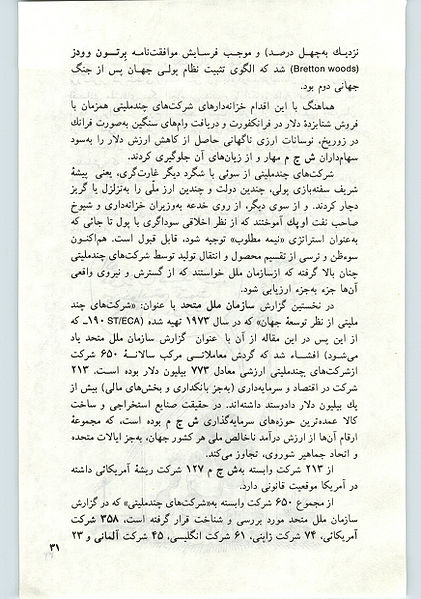 نزدیك به‌چهل درصد) و موجب فرسایش موافقت‌نامه برتسون وودز
(Bretton woods) شد که الگوی تثبیت نظام پولی جهان پس از جنگ
جهانی دوم بود.
هماهنگ با این اقدام خزانه‌دارهای شرکت‌های چندملیتی همزمان با
فروش شتابزدهٔ دلار در فرانکفورت و دریافت وام‌های سنگین به‌صورت فرانك
در زوریخ، نوسانات ارزی ناگهانی حاصل از کاهش ارزش دلار را به‌سود
سهامداران ش چ م مهار و از زیان‌های آن جلوگیری کردند.
شرکت‌های چندملیتی از سوئی با شگرد دیگر غارت‌گری، یعنی پیشهٔ
شریف سفته‌بازی پولی، چندین دولت و چندین ارز ملّی را به‌تزلزل یا گریز
دچار کردند. و از سوی دیگر، از روی خدعه به‌وزیران خزانه‌داری و شیوخ
صاحب نفت اوپك آموختند که از نظر اخلاقی سوداگری با پول تا جائی که
به‌عنوان استراتژی «نیمه مطلوب» توجیه شود، قابل قبول است. هم‌اکنون
سوءظن و ترسی از تقسیم محصول و انتقال تولید توسط شرکت‌های چندملیتی
چنان بالا گرفته که ازسازمان ملل خواستند که از گسترش و نیروی واقعی
آن‌ها جزء به‌جزء ارزیابی شود.
در نخستین گزارش سازمان ملل متحد با عنوان: «شرکت‌های چند
ملیتی از نظر توسعهٔ جهان» که در سال ۱۹۷۳ تهیه شده (ST/ECA ۱۹۰ـ که
از این پس در این مقاله از آن با عنوان گزارش سازمان ملل متحد یاد
می‌شود) افشاء شد که گردش معاملاتی مرکب سالانهٔ ۶۵۰ شرکت
ازشرکت‌های چندملیتی ارزشی معادل ۷۷۳ بیلیون دلار بوده است. ۲۱۳
شرکت در اقتصاد و سرمایه‌داری (به‌جز بانکداری و بخش‌های مالی) بیش از
یك بیلیون دلار دادوستد داشته‌اند. در حقیقت صنایع استخراجی و ساخت
کالا عمده‌ترین حوزه‌های سرمایه‌گذاری ش چ م بوده است، که مجموعهٔ
ارقام آن‌ها از ارزش درآمد ناخالص ملی هر کشور جهان، به‌جز ایالات متحده
و اتحاد جماهیر شوروی، تجاوز می‌کند.
از ۲۱۳ شرکت وابسته به‌ش چ م ۱۲۷ شرکت ریشهٔ آمریکائی داشته
در آمریکا موقعیت قانونی دارد.
از مجموع ۶۵۰ شرکت وابسته به«شرکت‌های چندملیتی» که در گزارش
سازمان ملل متحد مورد بررسی و شناخت قرار گرفته است، ۳۵۸ شرکت
آمریکائی، ۷۴ شرکت ژاپنی، ۶۱ شرکت انگلیسی، ۴۵ شرکت آلمانی و ۲۳
۳۱